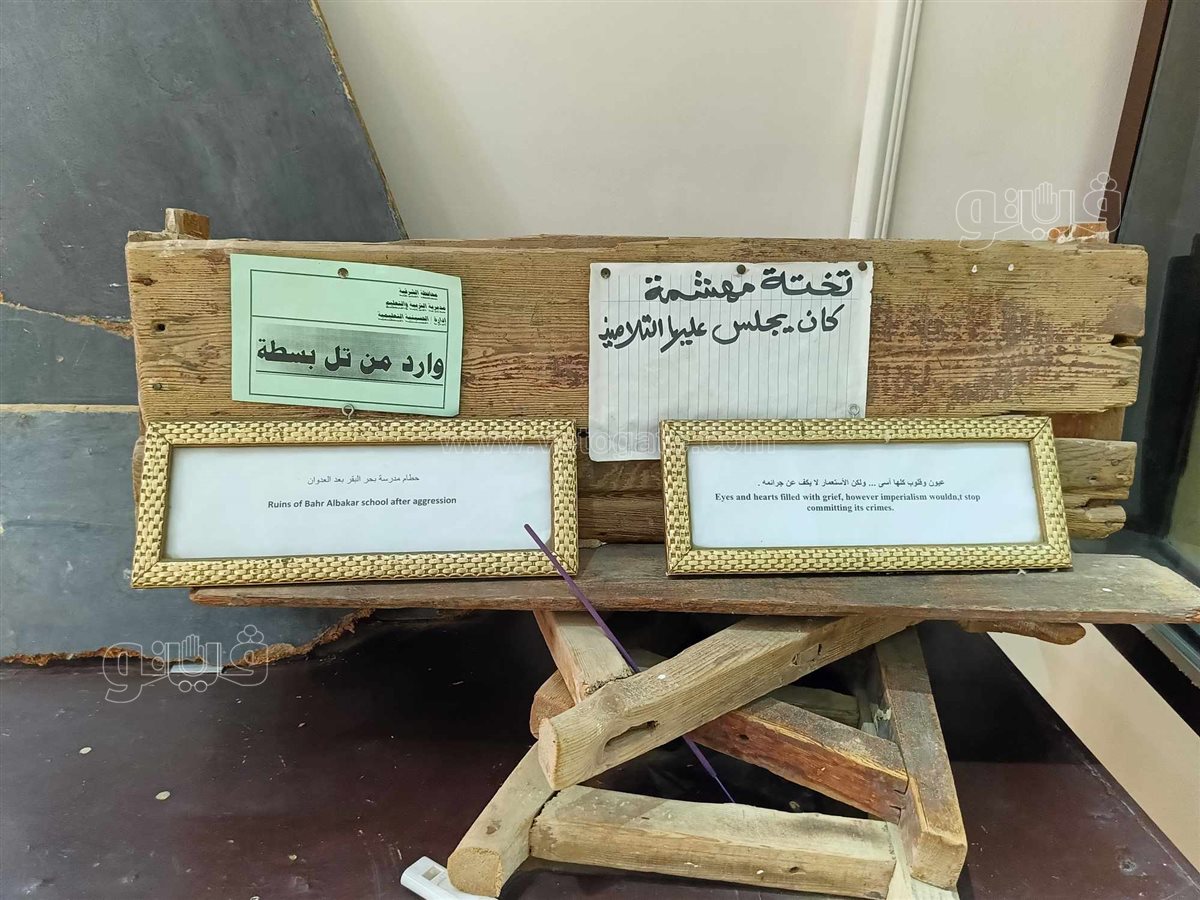 محافظة الشرقية
مديرية التربية والتعليم
إدارة الحسينية التعليمية
وارد من تل بسطة
تختة مهشمة
كان يجلس عليها التلاميذ
حطام مدرسة بحر البقر بعد العدوان
Ruins of Bahr Albakar school after aggression
عيون وقلوب كلها أسى ... ولكن الأستعمار لا يكف عن جرائمه .
Eyes and hearts filled with grief, however imperialism wouldn,t stop
committing its crimes.
فيتو
فيتو